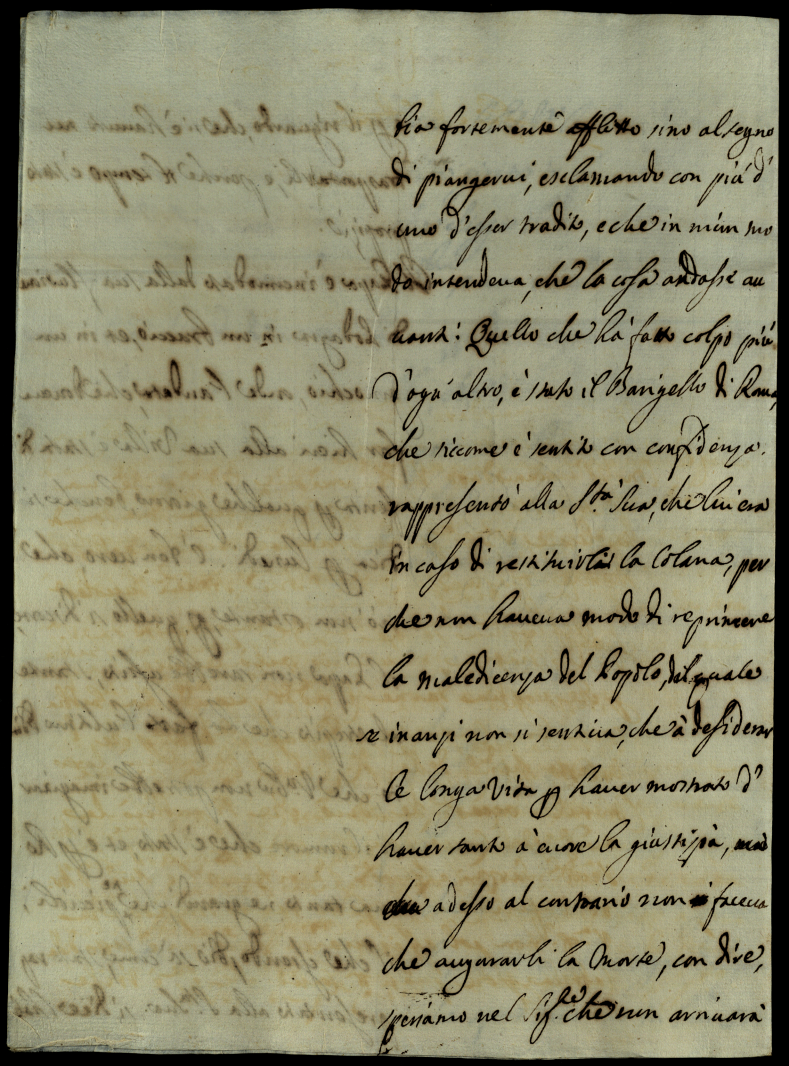 bia fortemente afflitto sino al segno
di piangervi, esclamando con più d'
uno d'esser tradito, e che in niun mo
do intendeva, che la cosa andasse au
uanti: Quello che hà fatto colpo più
d'ogn'altro, è stato il Barigello di Roma,
che siccome è sentito con confidenza
rappresentò alla S.tà Sua, che lui era
in caso di restituirli la Colana, per
che non haueua modo di reprimere
la maledicenza del Popolo, dal quale
inanzi non si sentiua, che à desiderar
le longa Vita p hauer mostrato d'
hauer tanto à cuore la giustizia, mà
che adesso al contrario non si faceua
che augurarli la Morte, con dire,
speriamo nel Sig.re che non arriuarà